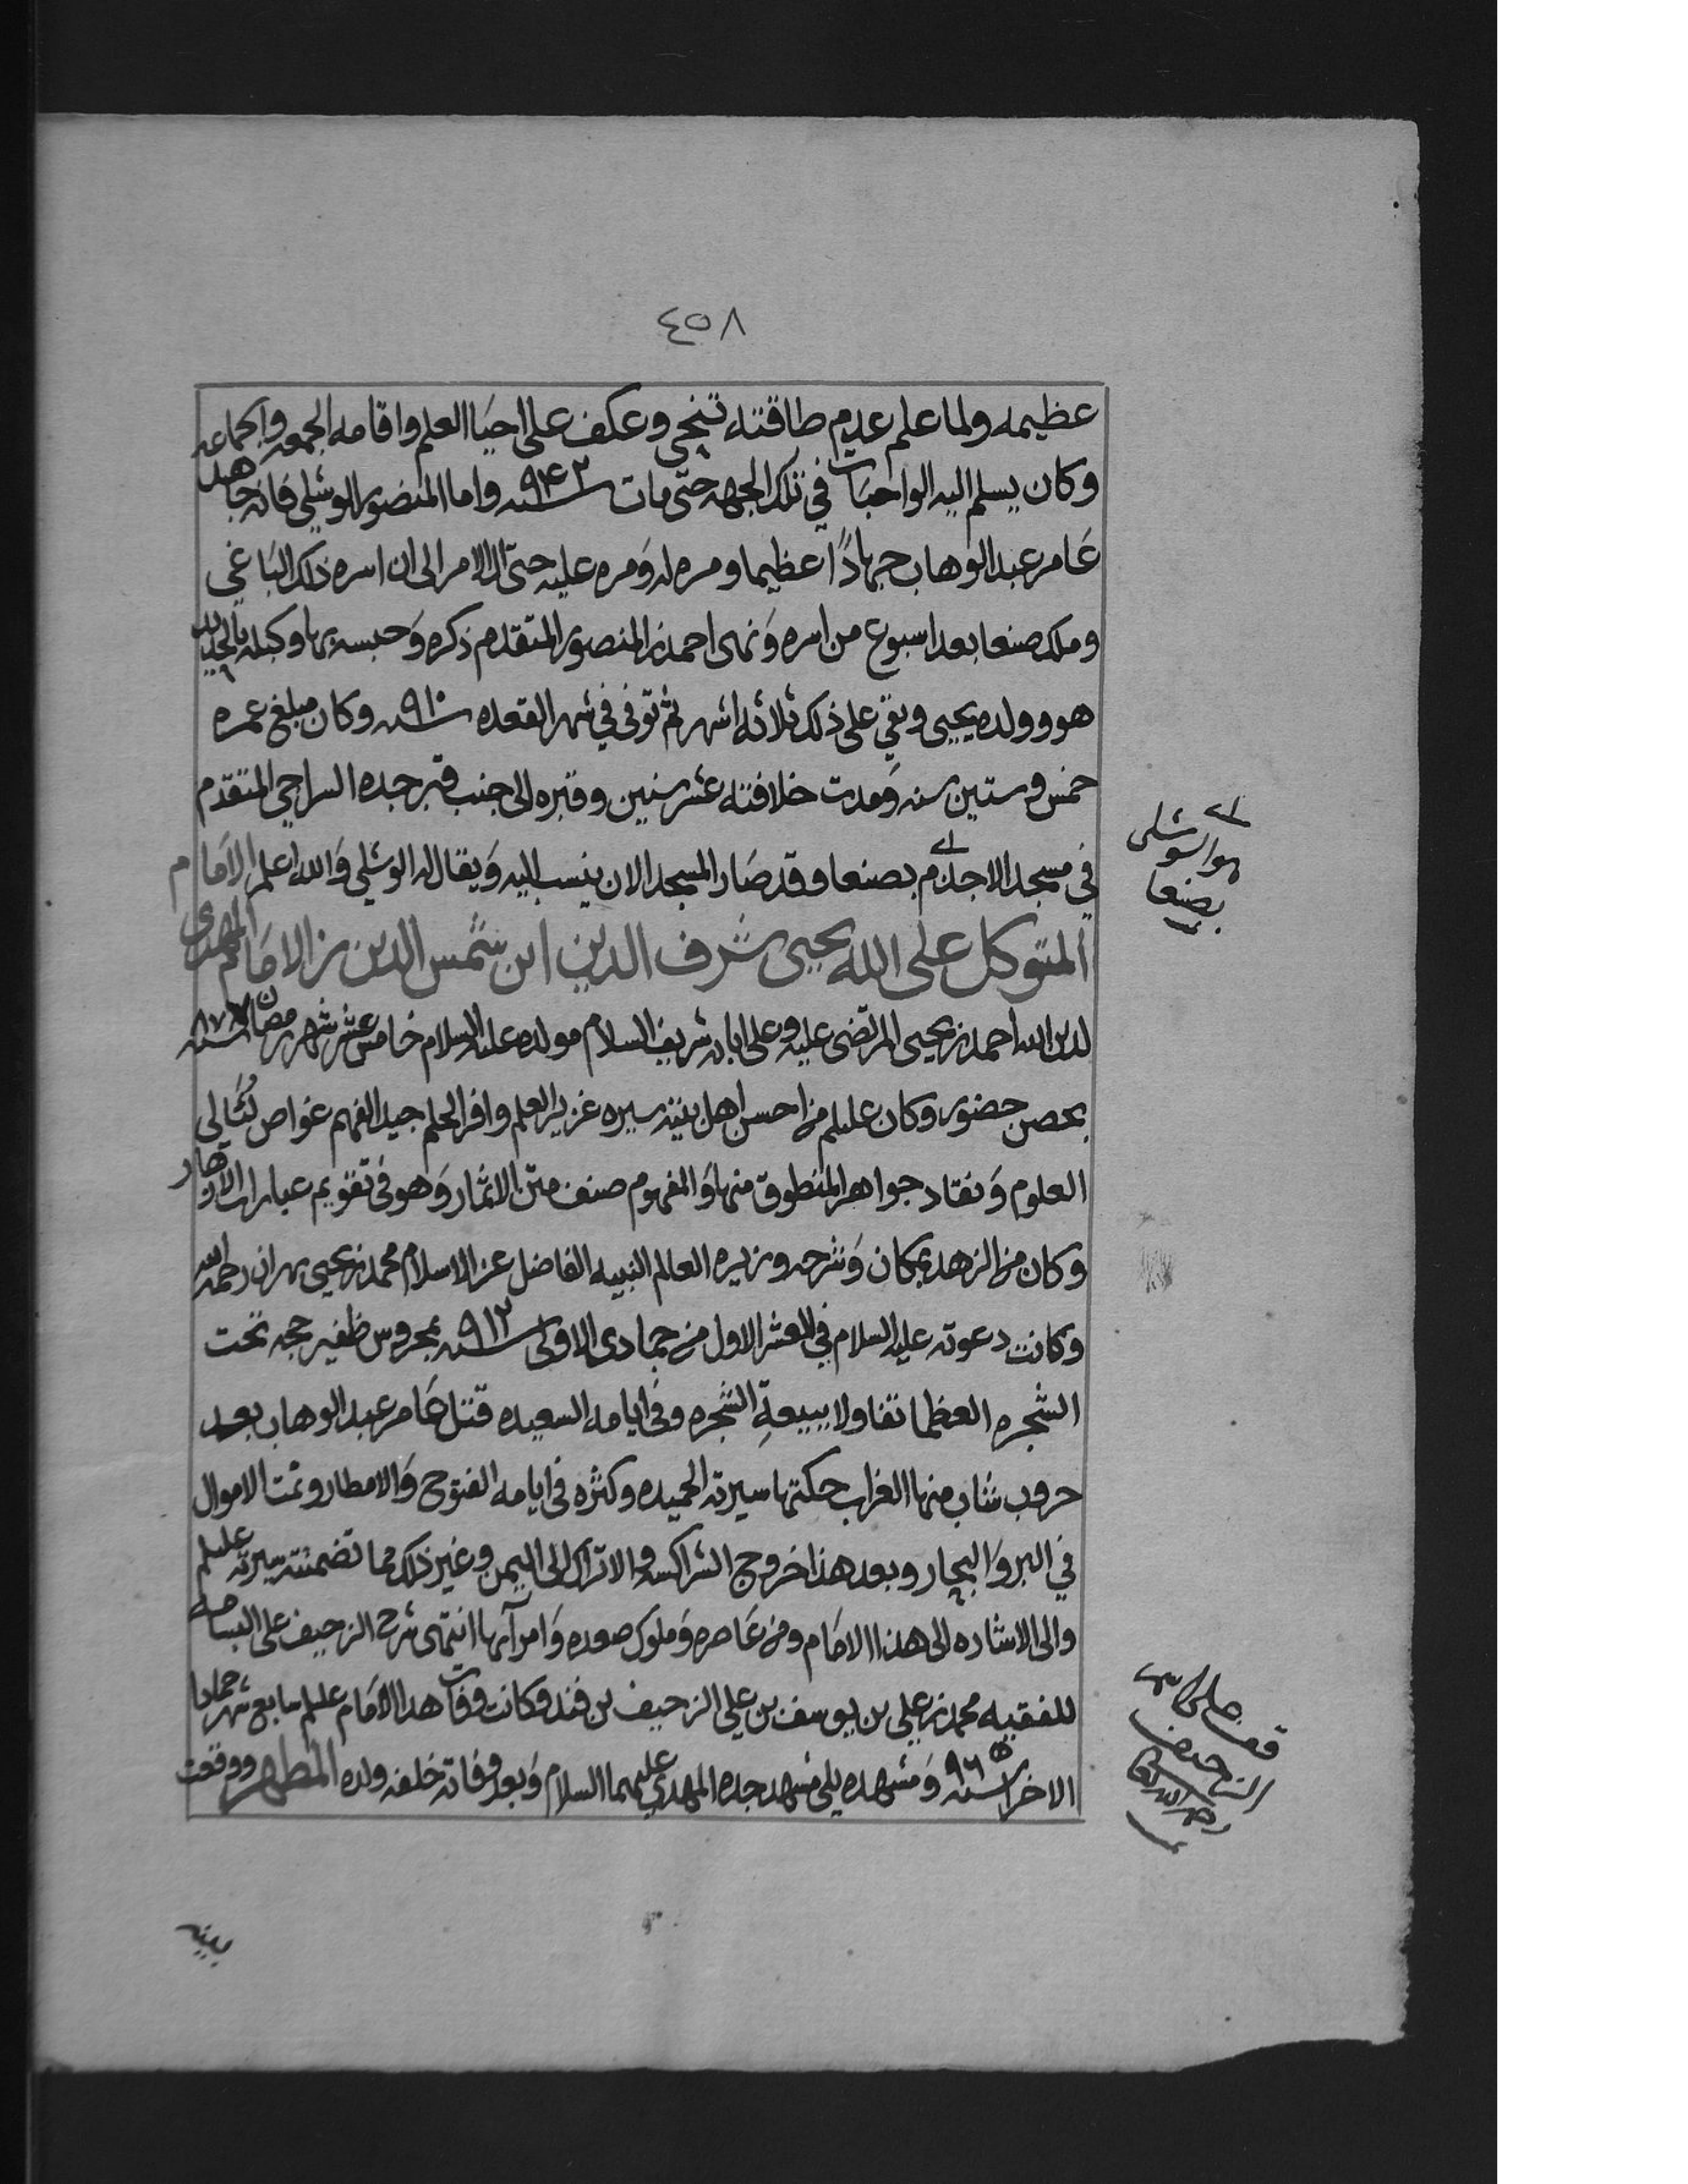 ٤٥٨
عظيمه ولما علم عدم طاقته تنحى وعكف على احيا العلم واقامه الجمعه والجماعه
وكان يسلم اليه الواجبات في تلك الجهه حتى مات سنه ٩٤٣ واما المنصور الوشلي فانه جاهد
عَامر عبد الوهاب جهادًا عظيما ومره له وَمره عليه حتى ال الامر الى ان اسره ذلك البَاغي
وملك صنعا بعد اسبوع من اسره وَنهى احمد بن المنصور المتقدم ذكره وَحبسه بها وكبله بالحديد
هو وولده يحيى وبقي على ذلك ثلاثه اشهر ثم توفى في شهر القعده سنه ٩١٠ وكان مبلغ عمره
خمس وستين سنه وَمدت خلافته عشر سنين وقبره الى جنب قبر جده السراجي المتقدم
في مسجد الاجذم بصنعا وقد صَار المسجد الان ينسب اليه وَيقال له الوشلي وَالله اعلم الامَام
المتوكل على الله يحيى شرف الدين ابن شمس الدين بن الامَام المهدى
لدين الله احمد بن يحيى المرتضى عليه وعلى ابايه شريف السلام مولده عليه السلام خامس عشر شهر رمضان سنه ٨٧٧
بحصن حضور وكان عليلم من احسن اهل بيته سيره غزير العلم وافر الحلم جيد الفهم غواص لُئَالي
العلوم وَنقاد جواهر المنطوق منها وَالمفهوم صنف متن الاثمار وَهو في تقويم عبارات الازهار
وكان من الزهد بمكان وَشرحه وزيره العالم النبيه الفاضل عز الاسلام محمد بن يحيى بهران رحمه الله
وكانت دعوته عليه السلام في العشر الاول من جمادى الاولى سنه ٩١٢ بمحروس ظفير حجه تحت
الشجره العظما تفاولا ببيعةِ الشجره وفى ايامه السعيده قتل عَامر عبد الوهاب بعد
حروب شاب منها الغراب حكتها سيرته الحميده وكثره فى ايامه الفتوح وَالامطار ونمت الاموال
في البر وَالبحار وبعد هذا خروج الشراكسه والاتراك الى اليمن وغير ذلك مما تضمنته سيرته عليلم
والى الاشاره الى هذا الامَام ومن عَاصره وَملوك صعده وَامرآيها انتهى شرح الزحيف على البسامه
للفقيه محمد بن علي بن يوسف بن علي الزحيف بن فند وكانت وفات هذا الامَام عليلم سابع شهر جمادا
الاخر سنه ٩٦٥ وَمشهده يلي مشهد جده المهدي عليهما السلام وَبعد وفاته خلفه ولده المطهر ووقعت
هو الوشلى
بصنعا
قف على
الزحيف
رحمه الله